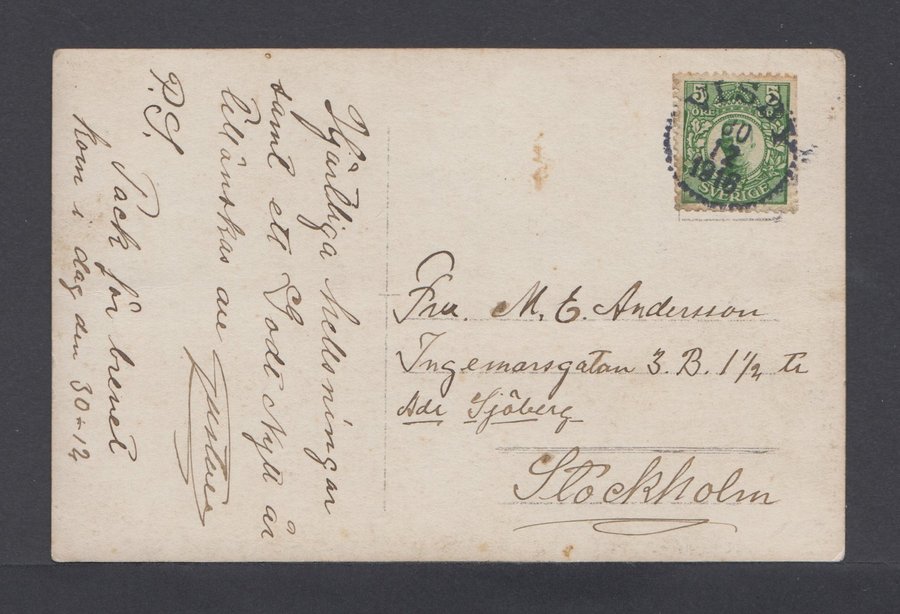 Hjärtliga helsningar
samt ett Godt Nytt år
tillönskas av
P.S.
Tack för brevet
kom i dag den 30-12
5 5
ÖRE
SVERIGE
VISBY
30
12
Fru. M. E. Andersson
Ingemarsgatan 3. B. 1 1/2 tr
Adr Sjöberg
Stockholm